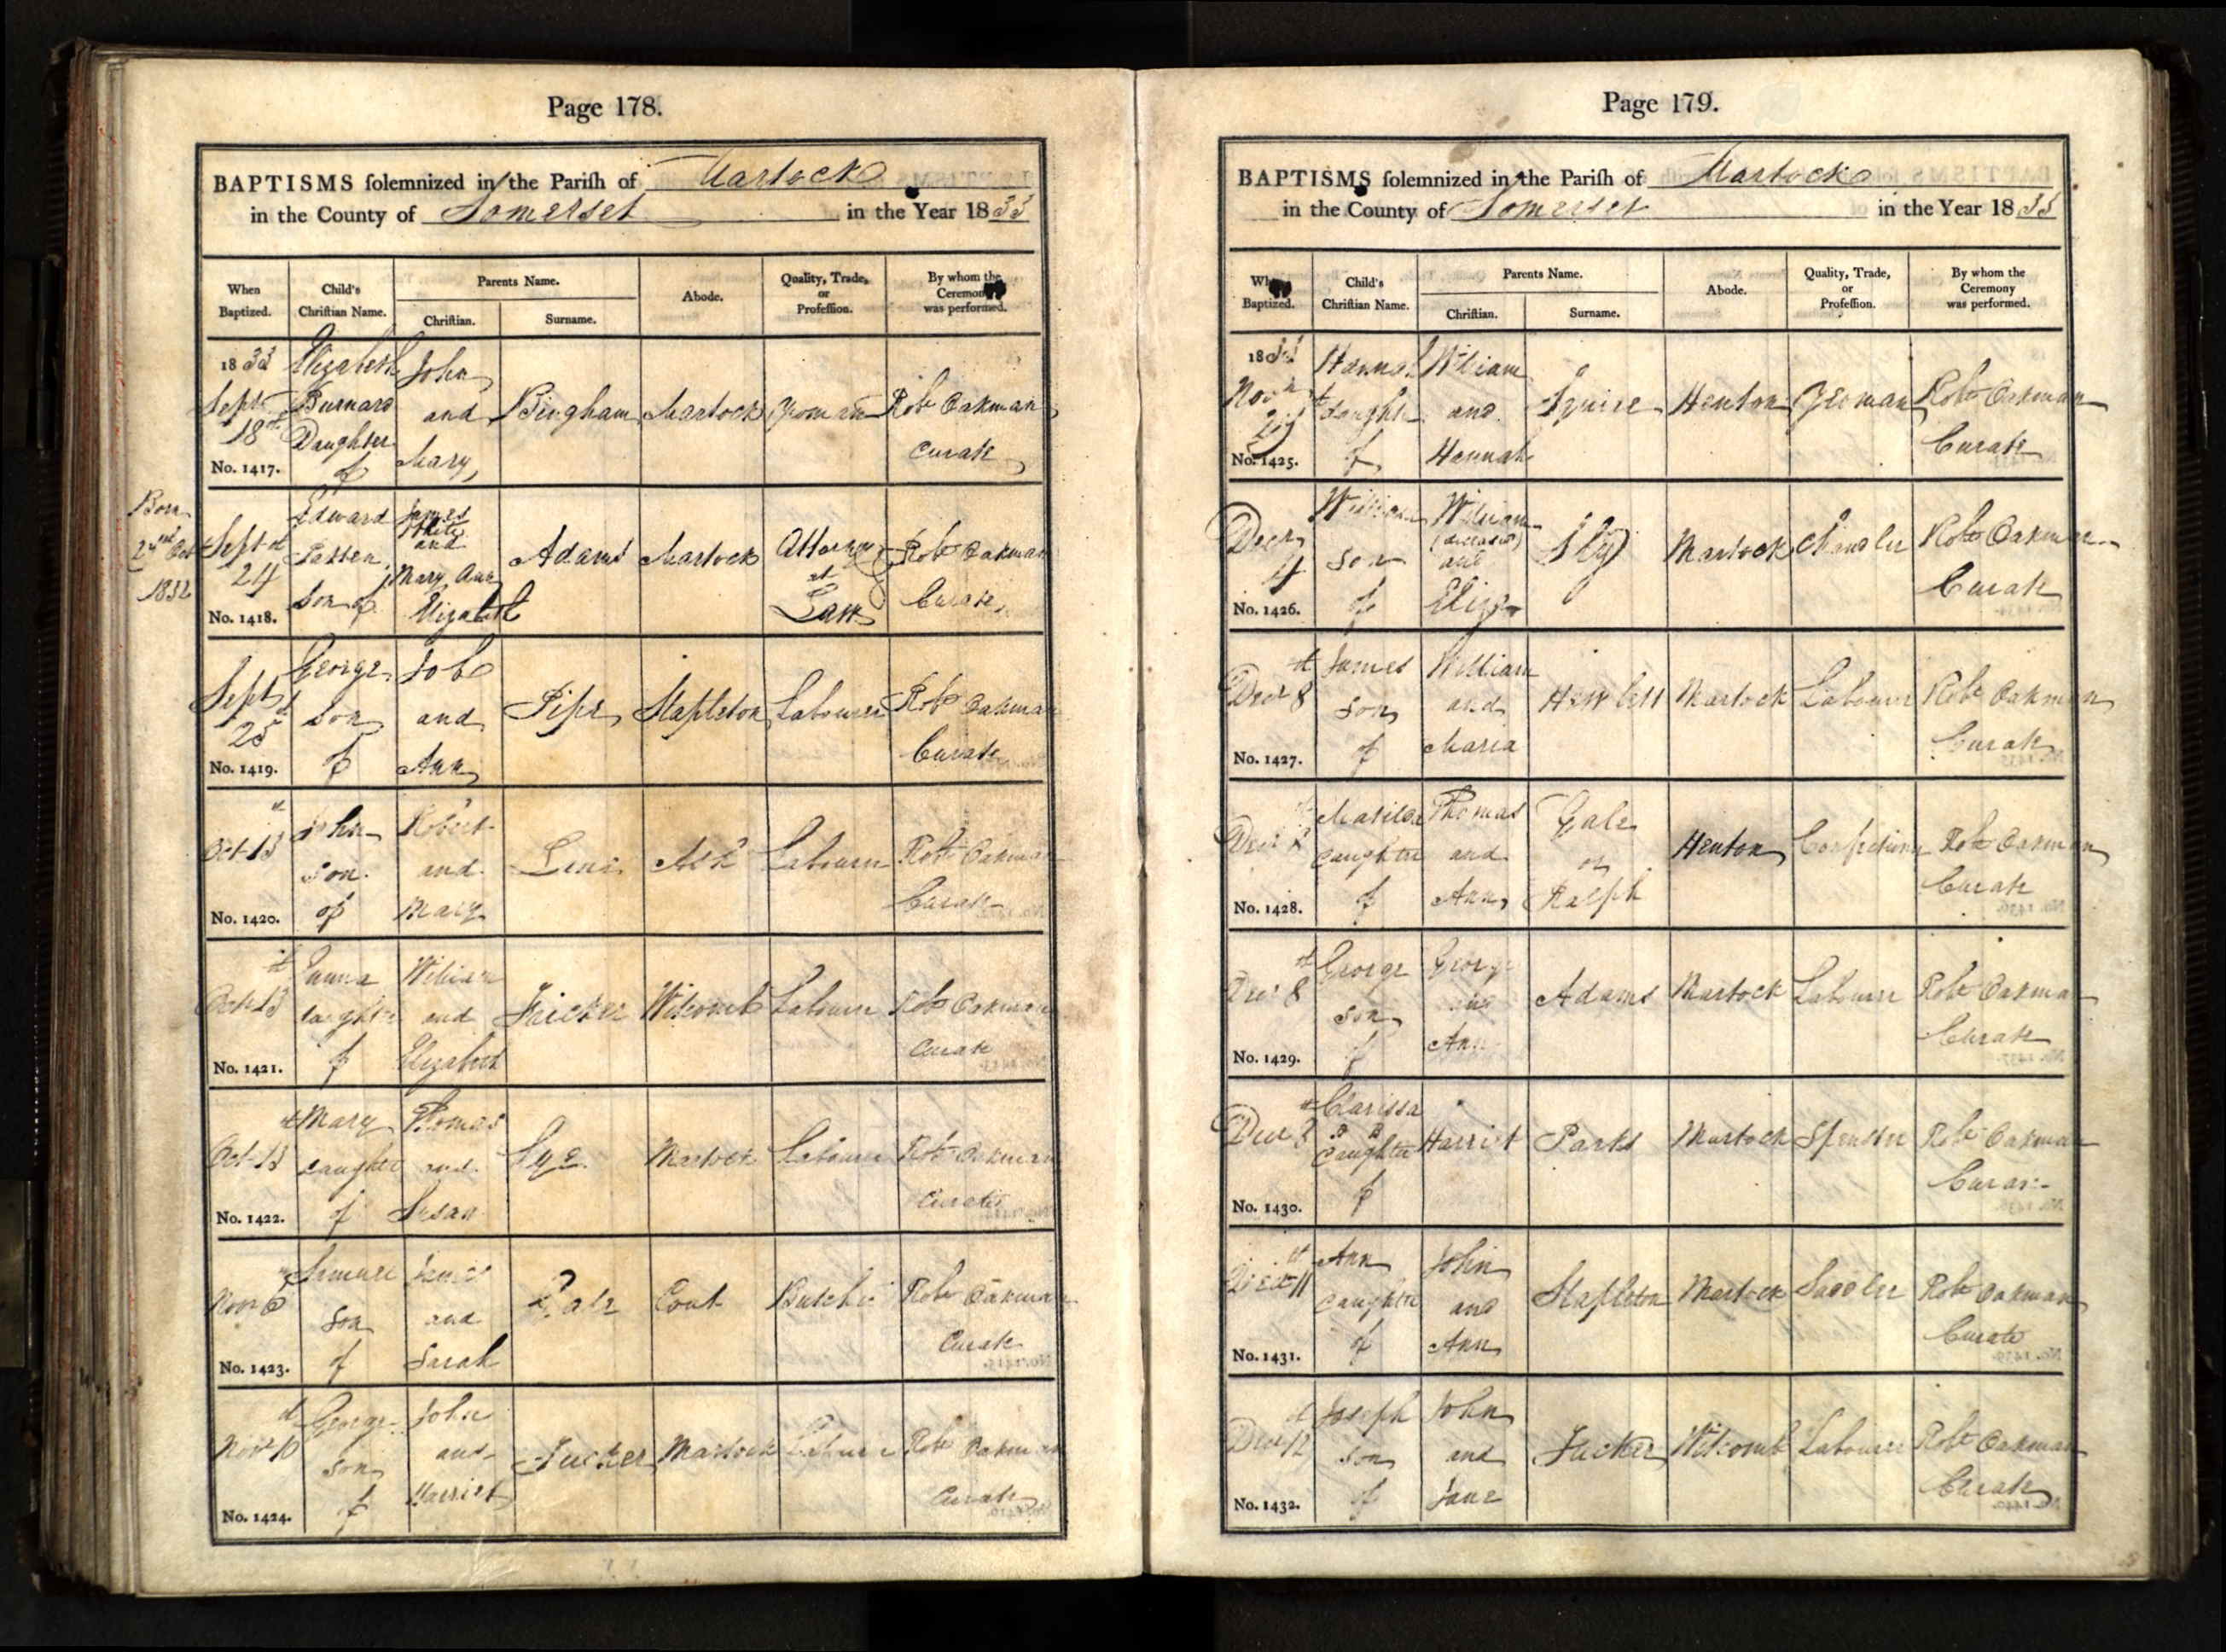 Page 178.
BAPTISMS solemnized in the Parish of Martock
in the County of Somerset in the Year 1833
When Baptized. Child's Christian Name. Parents Name. Christian. Surname. Abode. Quality, Trade, or Profession. By whom the Ceremony was performed.
1833 Elizabeth John
Sept 18th Burnard and Bingham Martock Yeoman Robt Oakman
Daughter Curate
No. 1417. of Mary
Born 2nd Oct 1832
Edward James White
Sept 24 and Adams Martock Attorney at Law Robt Oakman
Son of Mary Ann Curate
No. 1418. Elizabeth
George Job
Sept 25 Son and Piper Stapleton Labourer Robt Oakman
Curate
No. 1419. of Ann
John Robert
Oct 13 Son and Ash Labourer Robt Oakman
Curate
No. 1420. of Mary
Emma William
Oct 13 daughter and Fricker Witcomb Labourer Robt Oakman
Curate
No. 1421. of Elizabeth
Mary Thomas
Oct 13 daughter and Martock Labourer Robt Oakman
Curate
No. 1422. of Susan
Samuel James
Nov 6 Son and Coat Butcher Robt Oakman
Curate
No. 1423. of Sarah
George John
Nov 10 Son and Tucker Martock Labourer Robt Oakman
Curate
No. 1424. of Harriet
Page 179.
BAPTISMS solemnized in the Parish of Martock
in the County of Somerset in the Year 1833
When Baptized. Child's Christian Name. Parents Name. Christian. Surname. Abode. Quality, Trade, or Profession. By whom the Ceremony was performed.
1833 Hannah William
Novr daughter and Squire Henton Yeoman Robt Oakman
Curate
No. 1425. of Hannah
William William (deceased)
Decr 4 Son and Sly Martock Chandler Robt Oakman
Curate
No. 1426. of Eliza
James William
Decr 8 Son and Hewlett Martock Labourer Robt Oakman
Curate
No. 1427. of Maria
Matilda Thomas Gale
Decr 8 daughter and or Henton Robt Oakman
Curate
No. 1428. of Ann Ralph
George George
Decr 8 Son and Adams Martock Labourer Robt Oakman
Curate
No. 1429. of Ann
Clarissa
Decr 8 daughter Harriet Parks Martock Spinster Robt Oakman
Curate
No. 1430. of
Ann John
Decr 11 daughter and Stapleton Martock Saddler Robt Oakman
Curate
No. 1431. of Ann
Joseph John
Decr 12 Son and Tucker Witcomb Labourer Robt Oakman
Curate
No. 1432. of Jane